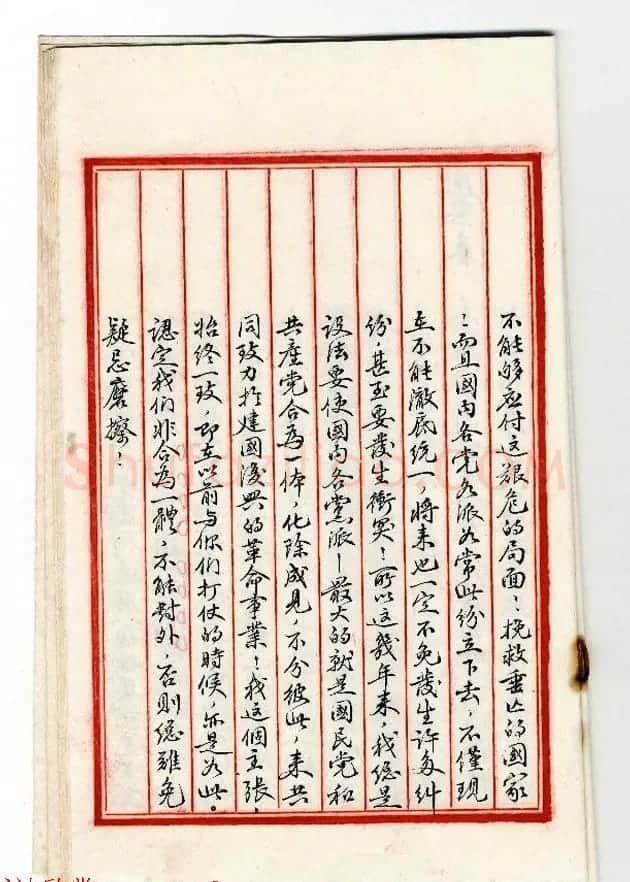 不能够应付这艰危的局面！挽救垂亡的國家
！而且國内各党各派如常此纷立下去，不僅現
在不能澈底统一，将来也一定不免發生许多纠
纷，甚至要發生衝突！所以這幾年来，我總是
设法要使國内各黨派－最大的就是國民党和
共產党合為一体，化除成見，不分彼此，来共
同致力於建國復興的革命事業！我這個主張，
始终一致，即在以前与你们打仗的時候，亦是如此。
認定我们非合為一體，不能對外，否則總難免
疑忌磨擦！